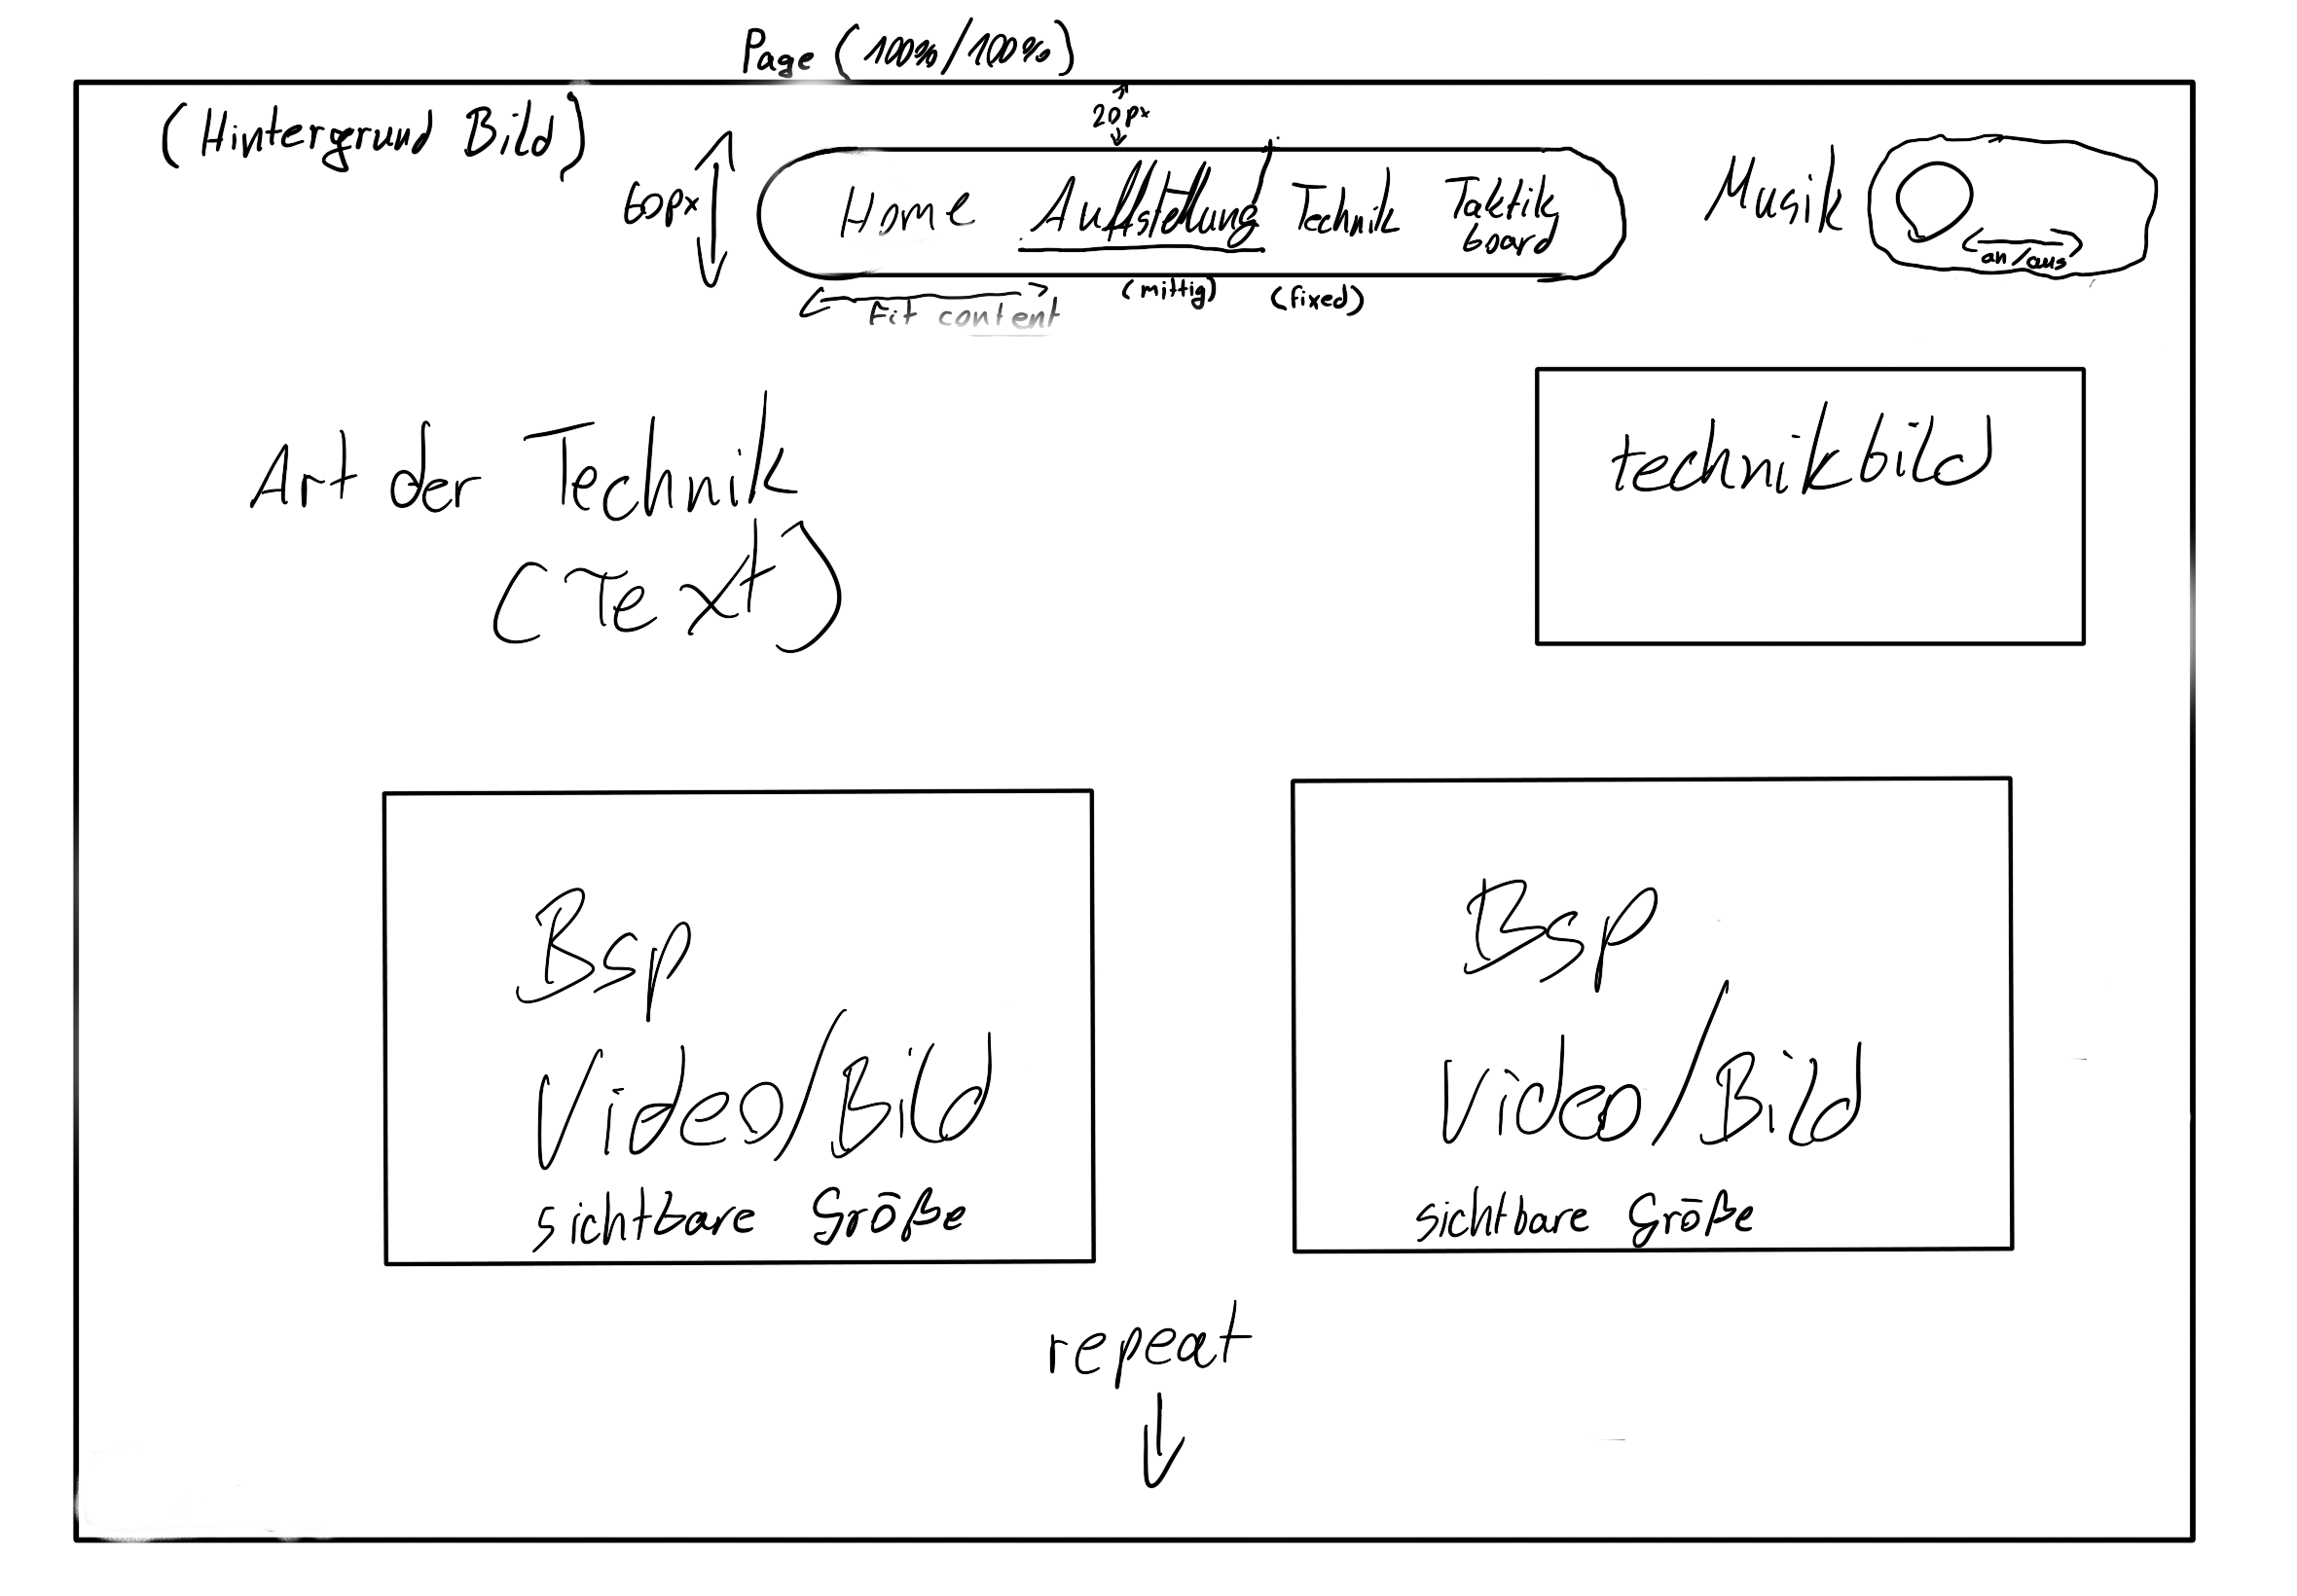 Page (100%/100%)
(Hintergrund Bild)
20px
60px
Home Aufstellung Technik Taktik
board
Musik
an/aus
Fit content
(mittig) (fixed)
Art der Technik
(Text)
technikbild
Bsp
Video/Bild
sichtbare Größe
Bsp
Video/Bild
sichtbare Größe
repeat